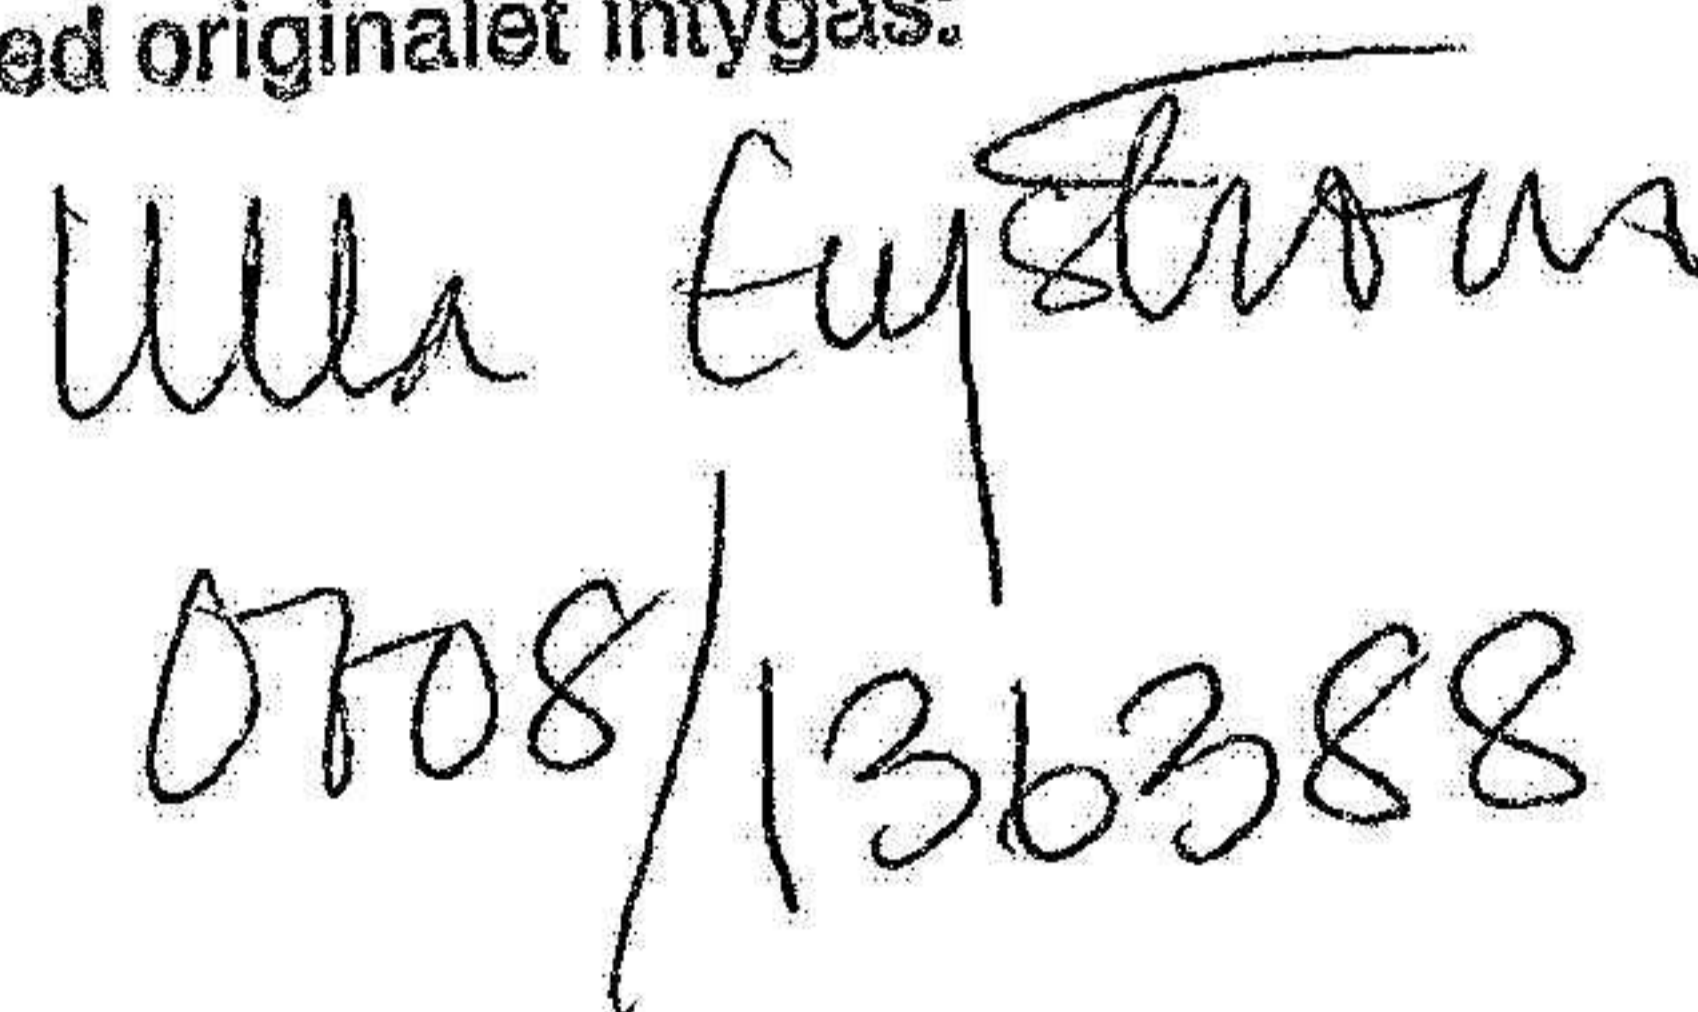 ed originalet intygas:
Ulla Engström
0708/136388